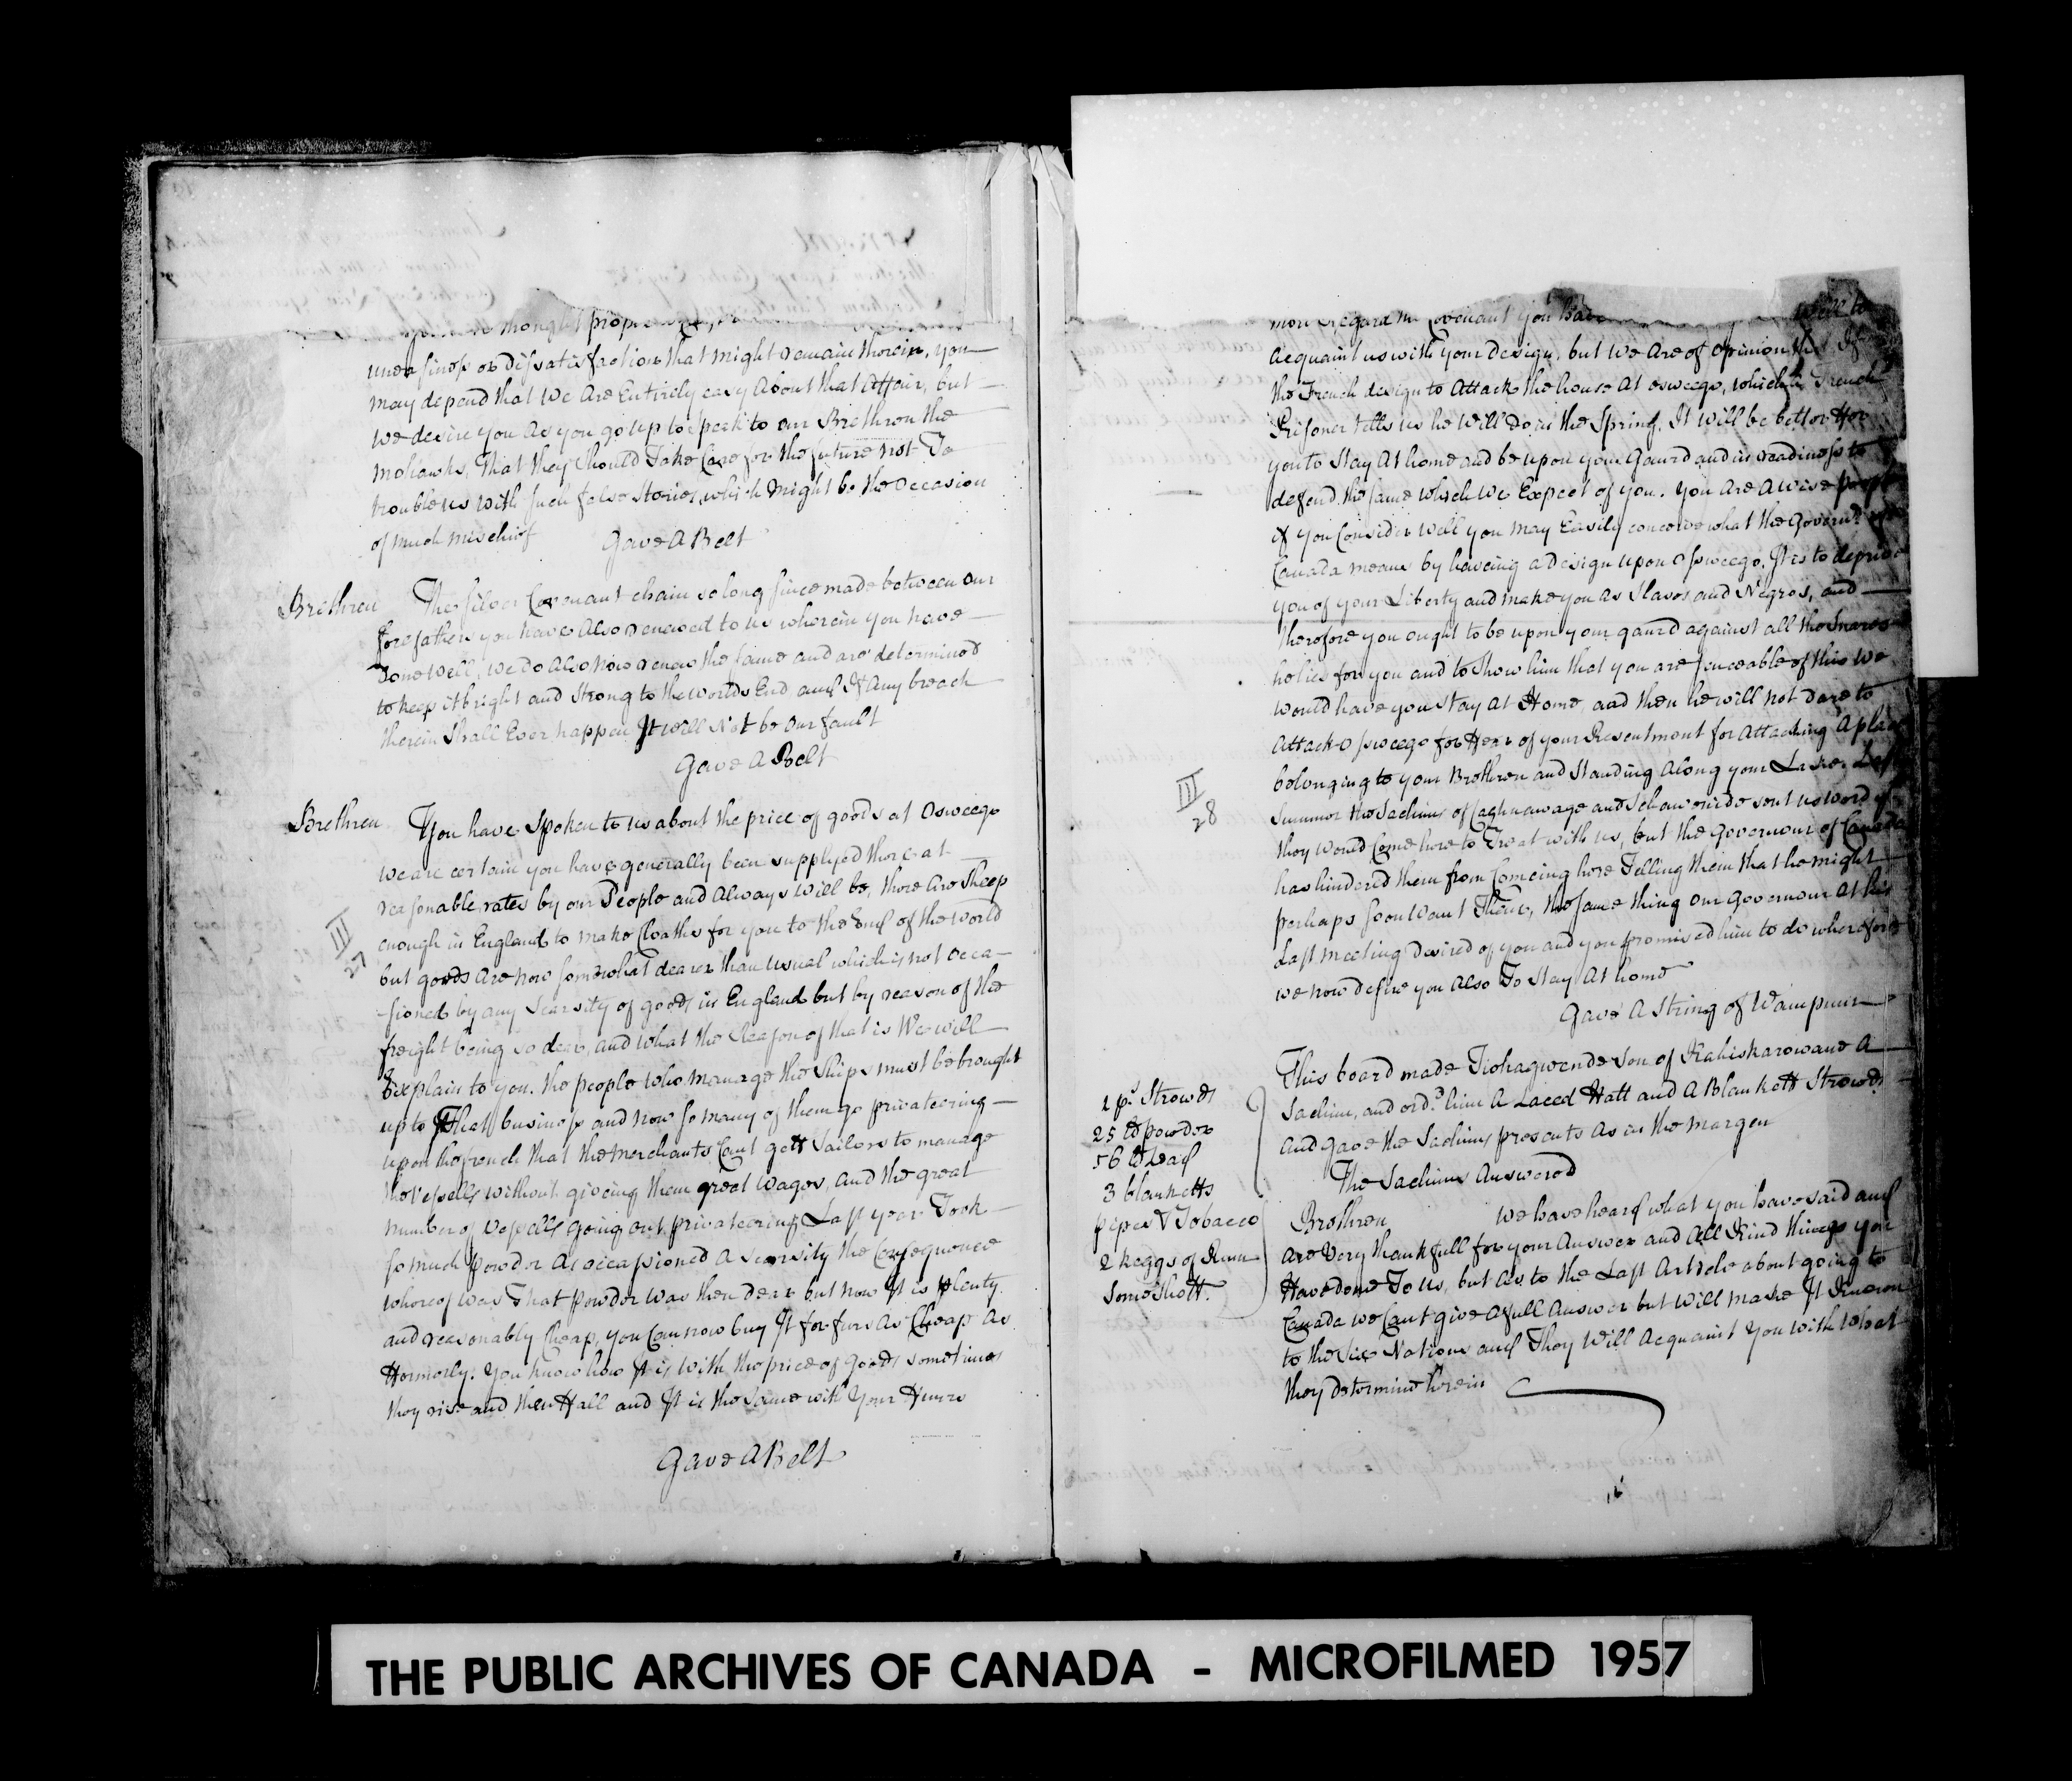 thought proper
uneasiness or dissatisfaction that might remain therein, you
may depend that We Are Entirely easy About that Affair, but
we desire you As you go up to speak to our Brethren the
mohawks, That they should Take Care for the future not To
trouble us with such false stories, which might be the Occasion
of much mischief
Gave A Belt
Brethren The silver Covenant chain so long since made between our
forefathers you have Also renewed to us wherein you have
Done well, we do Also now renew the same and are determined
to keep it bright and strong to the worlds End and If Any breach
therein shall Ever happen It will Not be our fault
Gave A Belt
Brethren You have spoken to us about the price of goods at Osweego
we are certain you have generally been supplyed there at
reasonable rates by our People and Always will be, there Are sheep
III
27
enough in England to make Cloaths for you to the End of the world
but goods Are now somewhat dearer than usual which is not occa-
-sioned by any scarsity of goods in England but by reason of the
freight being so dear, and what the Reason of that is We will
Explain to you. the people who manage the ships must be brought
up to That business and now so many of them go privateering
upon the french that the merchants Cant gett Sailors to manage
the Vessells without giveing them great wages, and the great
number of vessells going out privateering Last year Took
so much powder As occassioned A scarsity the Consequence
whereof was That powder was then dear but now It is plenty
and reasonably Cheap, you Can now buy It for furs As Cheap As
Formerly. You know how It is with the price of goods sometimes
they rise and then Fall and It is the same with Your Furrs
Gave A Belt
more regard the Covenant you have will to
Acquaint us with your design, but We Are of opinion that If
the French design to Attack the house At osweego, which the French
Prisoner tells us he will Do in the Spring, It will be better for
you to Stay At home and be upon your Gaurd and in readiness to
defend the same which we Expect of you. you Are A wise people
if you Consider well you may Easily conceive what the Govern.r of
Canada means by haveing a design upon Osweego. It is to deprive
you of your Liberty and make you As Slaves and Negros, and
therefore you ought to be upon your gaurd against all the Snares
he lies for you and to show him that you are senceable of this We
would have you Stay at Home and then he will not dare to
Attack Osweego for Fear of your Resentment for Attacking A place
belonging to your Brethren and Standing Along your Lake. Last
III
28
Summer the Sachims of Caghnawage and sent us word if
they would Come here to Treat with us, but the Governour of Canada
has hindered them from Comeing here Telling them that he might
perhaps soon Want Them, the same thing our Governour At his
Last meeting desired of you and you promised him to do wherefore
we now desire you Also To Stay At home
Gave A String of Wampum
This board made Tiohagwende Son of Kahiskarowane A
Sachim, and ord.d him A Laced Hatt and A Blankett Strowds
and gave the Sachims presents As in the margen
1 p.s Strowds
25 lb powder
56 lb Lead
3 blanketts
pipes & Tobacco
2 keggs of Rum
some Shott.
The Sachims Answered
Brethren we have heard what you have said and
Are Very thankfull for your Answer and All Kind things you
Have done To us, but As to the Last Article about going to
Canada we Cant give A full Answer but will make It Known
to the Six Nations and They Will Acquaint You with what
they determine herein
THE PUBLIC ARCHIVES OF CANADA - MICROFILMED 1957